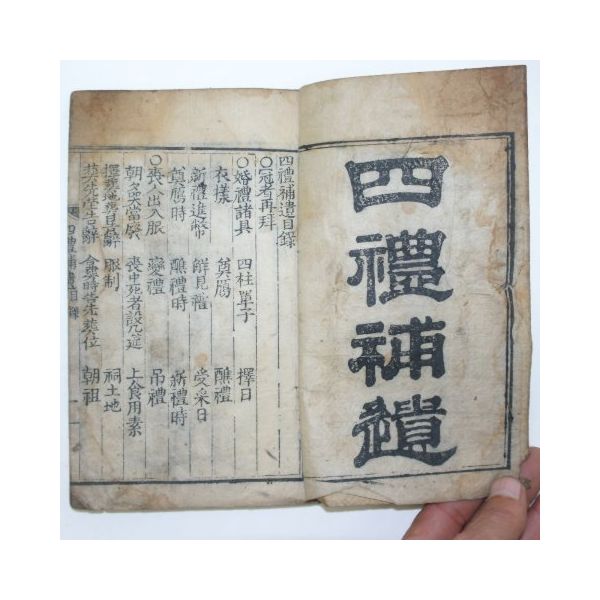 四禮補遺
四禮補遺目錄
〇冠者再拜
〇婚禮諸具 四柱單子 擇日
衣樣 奠鴈 醮禮
新禮進幣 鮮見禮 受采日
奠鴈時 醮禮時 新禮時
〇喪人出入服 變禮 吊禮
朝夕哭當展 喪中死者設几筵 上食用素
服制 祠土地
葬先亡告辭 合葬時告先葬位 朝祖
四禮補遺目錄 一